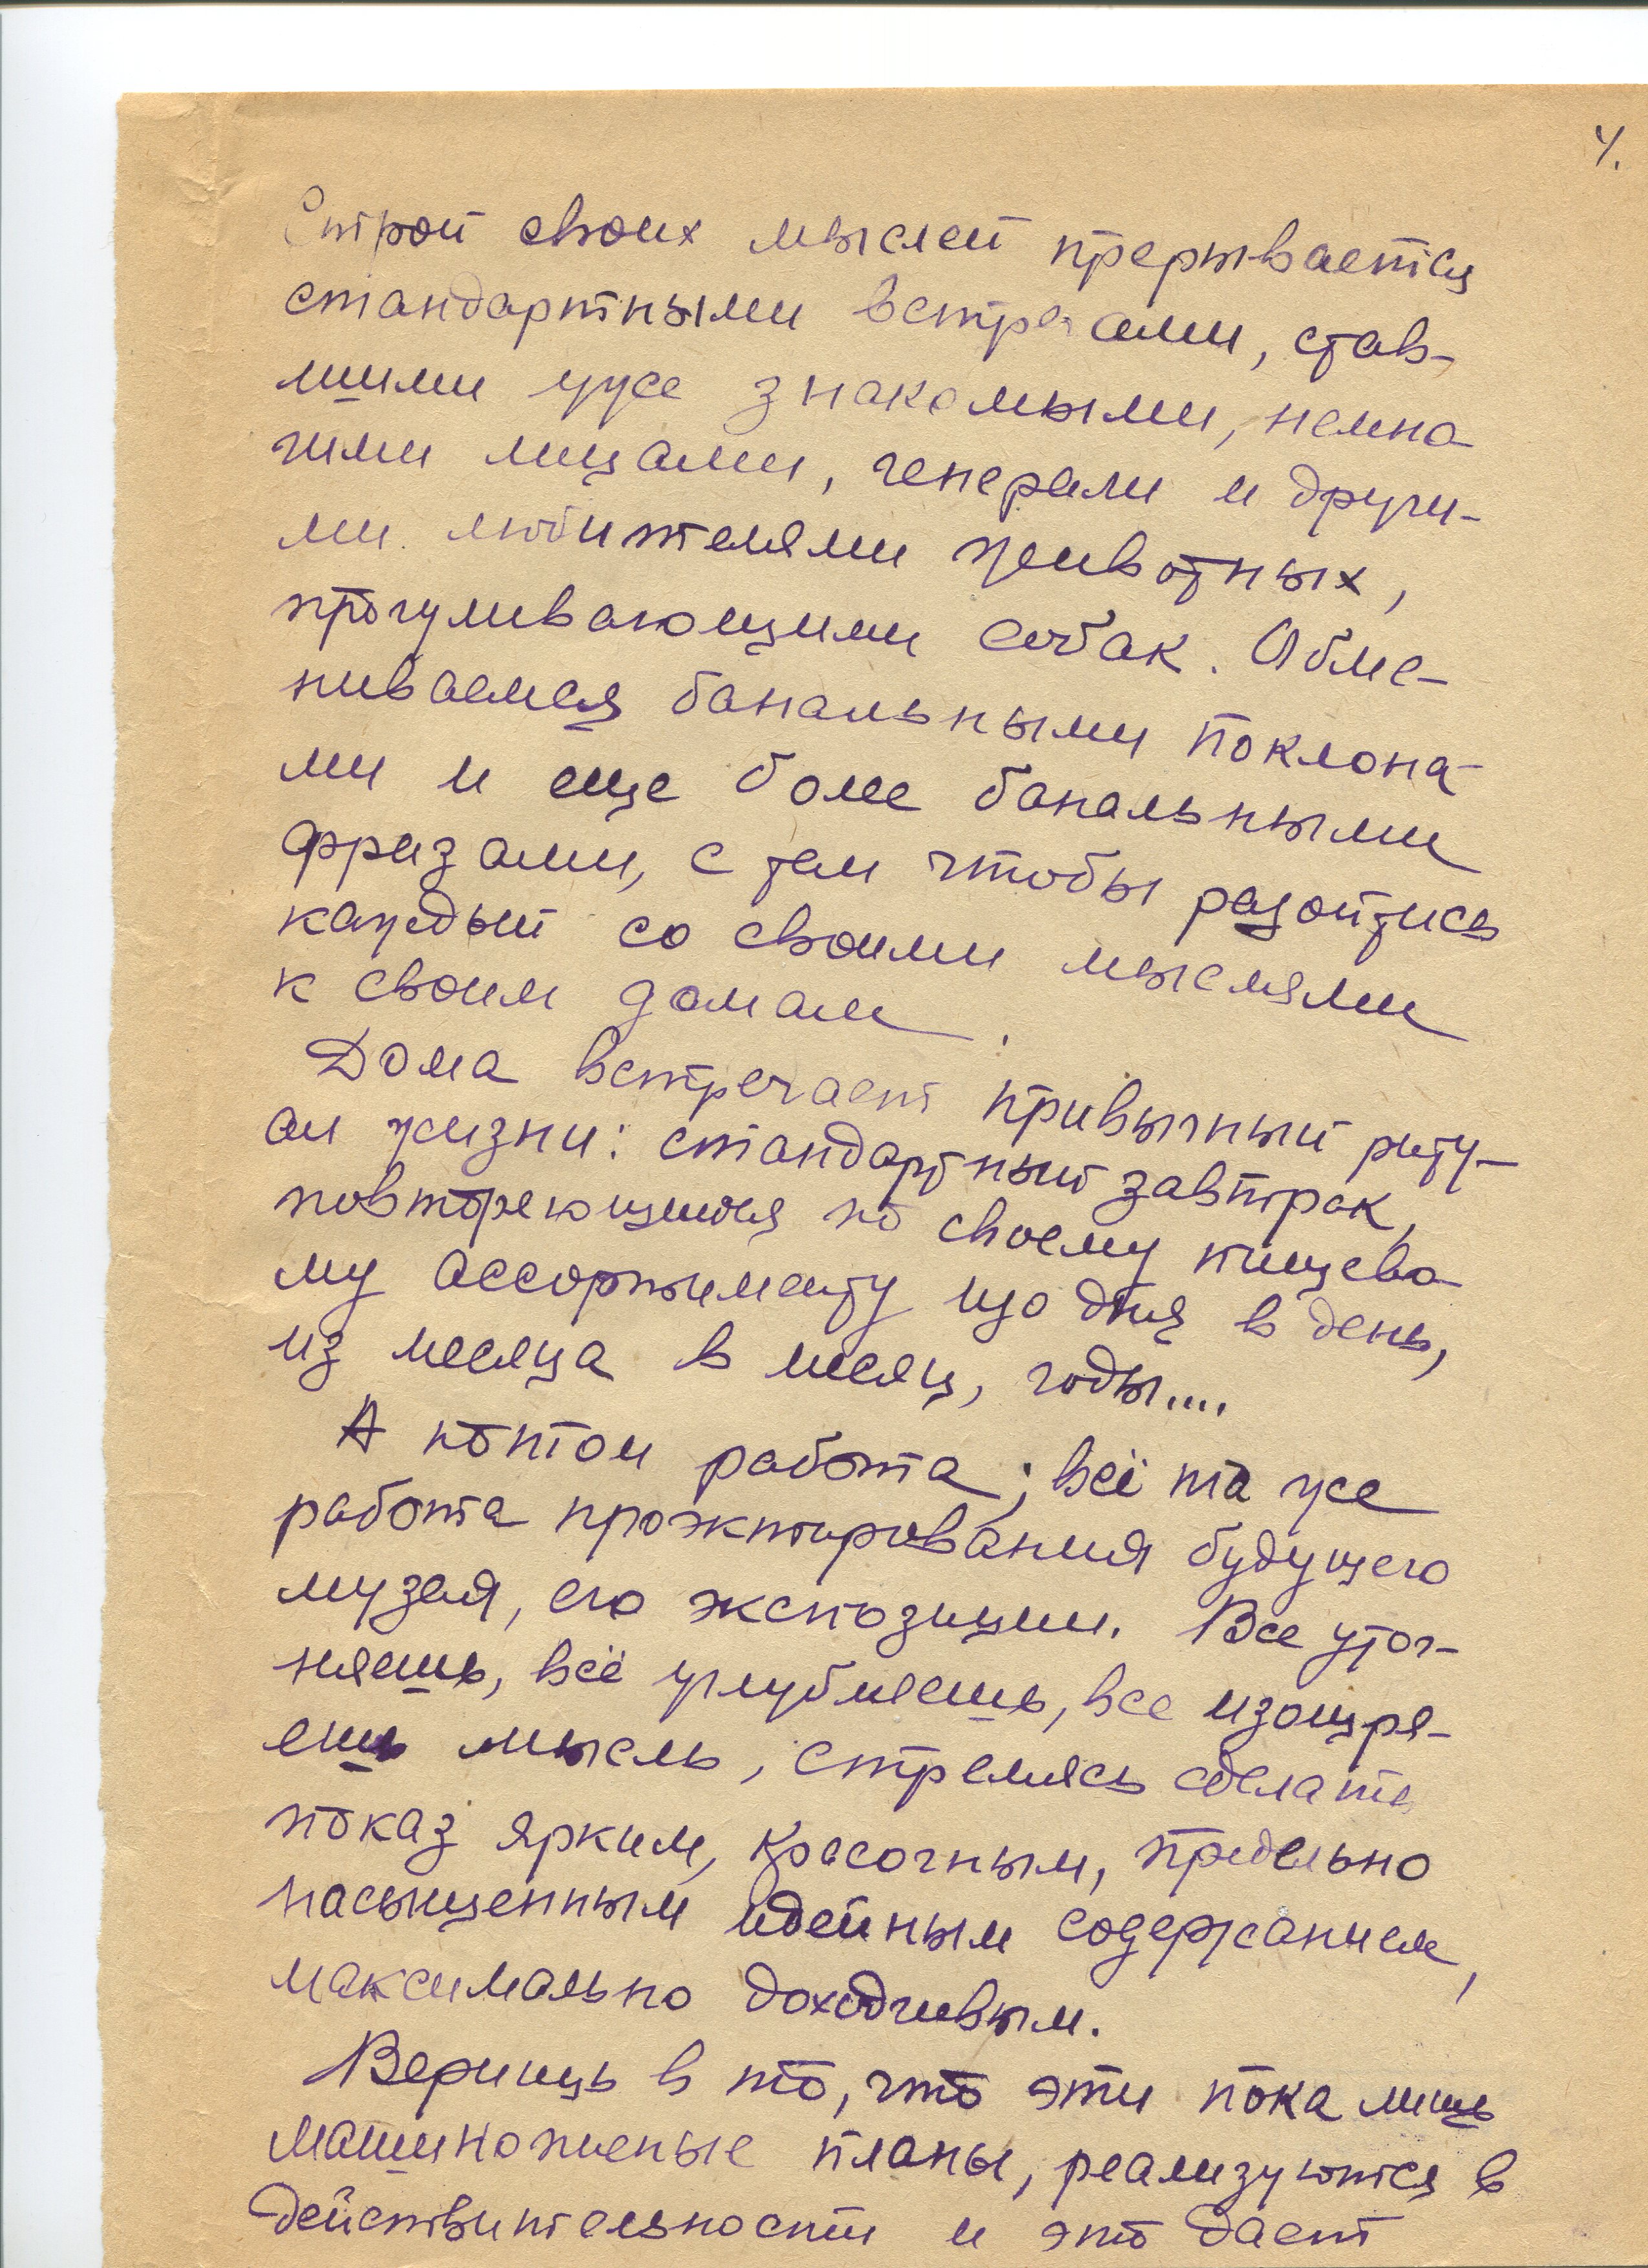 4.
Строй своих мыслей прерывается
стандартными встречами, став-
шими уже знакомыми, немно
гими лицами, и други-
ми любителями животных,
прогуливающими собак. Обме-
ниваемся банальными поклона-
ми и еще более банальными
фразами, с тем чтобы разойтись
каждый со своими мыслями
к своим домам.
Дома встречает привычный риту-
ал жизни: стандартный завтрак,
повторяющийся по своему пищево
му ассортименту изо дня в день,
из месяца в месяц, годы....
А потом работа; всё та же
работа проэктирования будущего
музея, его экспозиции. Все уточ-
няешь, всё углубляешь, все изощря-
ешь мысль, стремясь сделать
показ ярким, красочным, предельно
насыщенным идейным содержанием,
максимально доходчивым.
Веришь в то, что эти пока лишь
машинописные планы, реализуются в
действительности и это дает